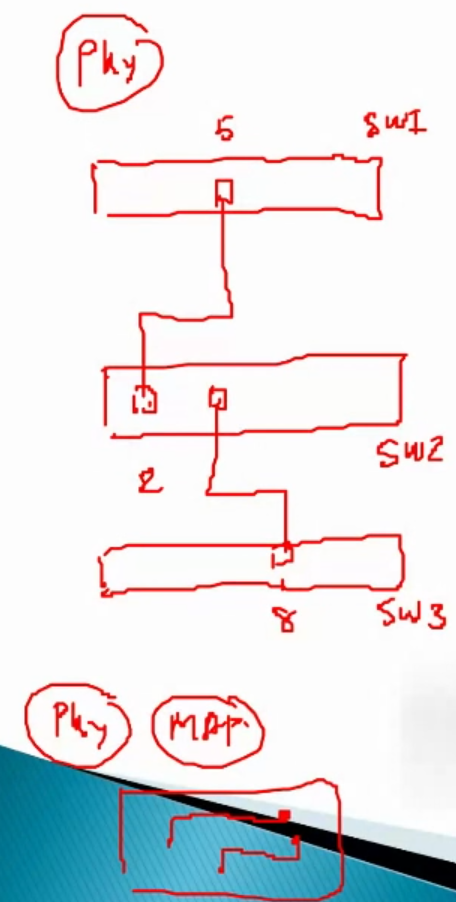 Phy
5 SW1
SW2
2
8 SW3
Phy MAP